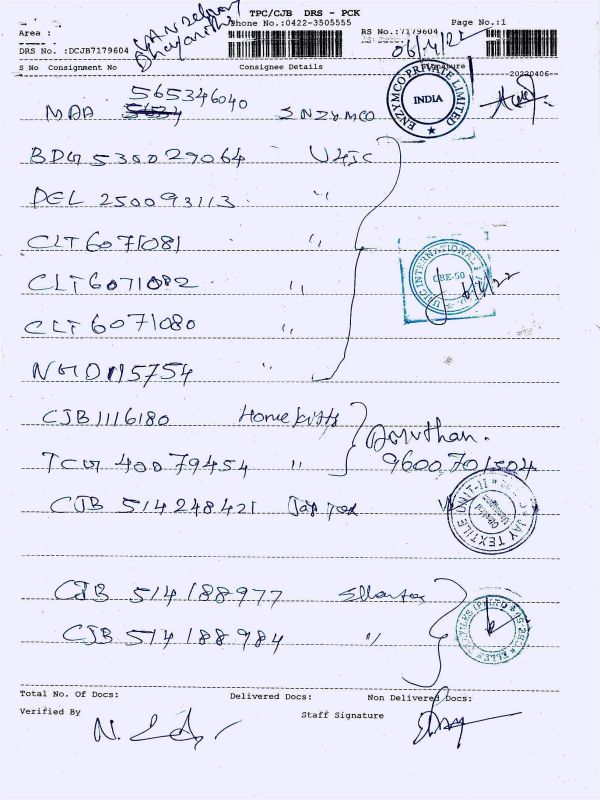 TPC/CJB DRS - PCK
Phone No.:0422-3505555
Page No.:1
Area :
RS No.:7179604
06/4/22
DRS No. :DCJB7179604
S No Consignment No Consignee Details Signature
20220406-
MAA 565346040 ENZYMCO
ENZYMCO PRIVATE LIMITED
INDIA
BDG 530029064 UHIC
DEL 250093113 "
CLT 6071081 "
UHIC INTERNATIONAL
CBE-50
6/4/22
CLT 6071082 "
CLT 6071080 "
NGO 115754 "
CJB 1116180 Home
TCG 40079454 "
9600701504
CJB 514248421 Jay Tex
JAY TEXTILE UNIT-II
CJB 514188977
CJB 514188984 "
Total No. Of Docs: Delivered Docs: Non Delivered Docs:
Verified By Staff Signature